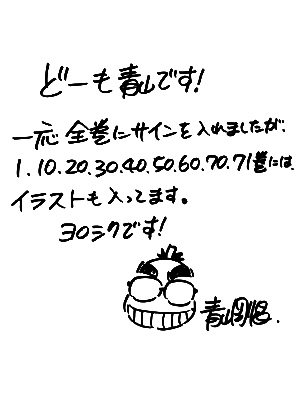 どーも青山です!
一応全巻にサインを入れましたが、
1.10.20.30.40.50.60.70.71巻には、
イラストも入ってます。
ヨロシクです!
青山剛昌.